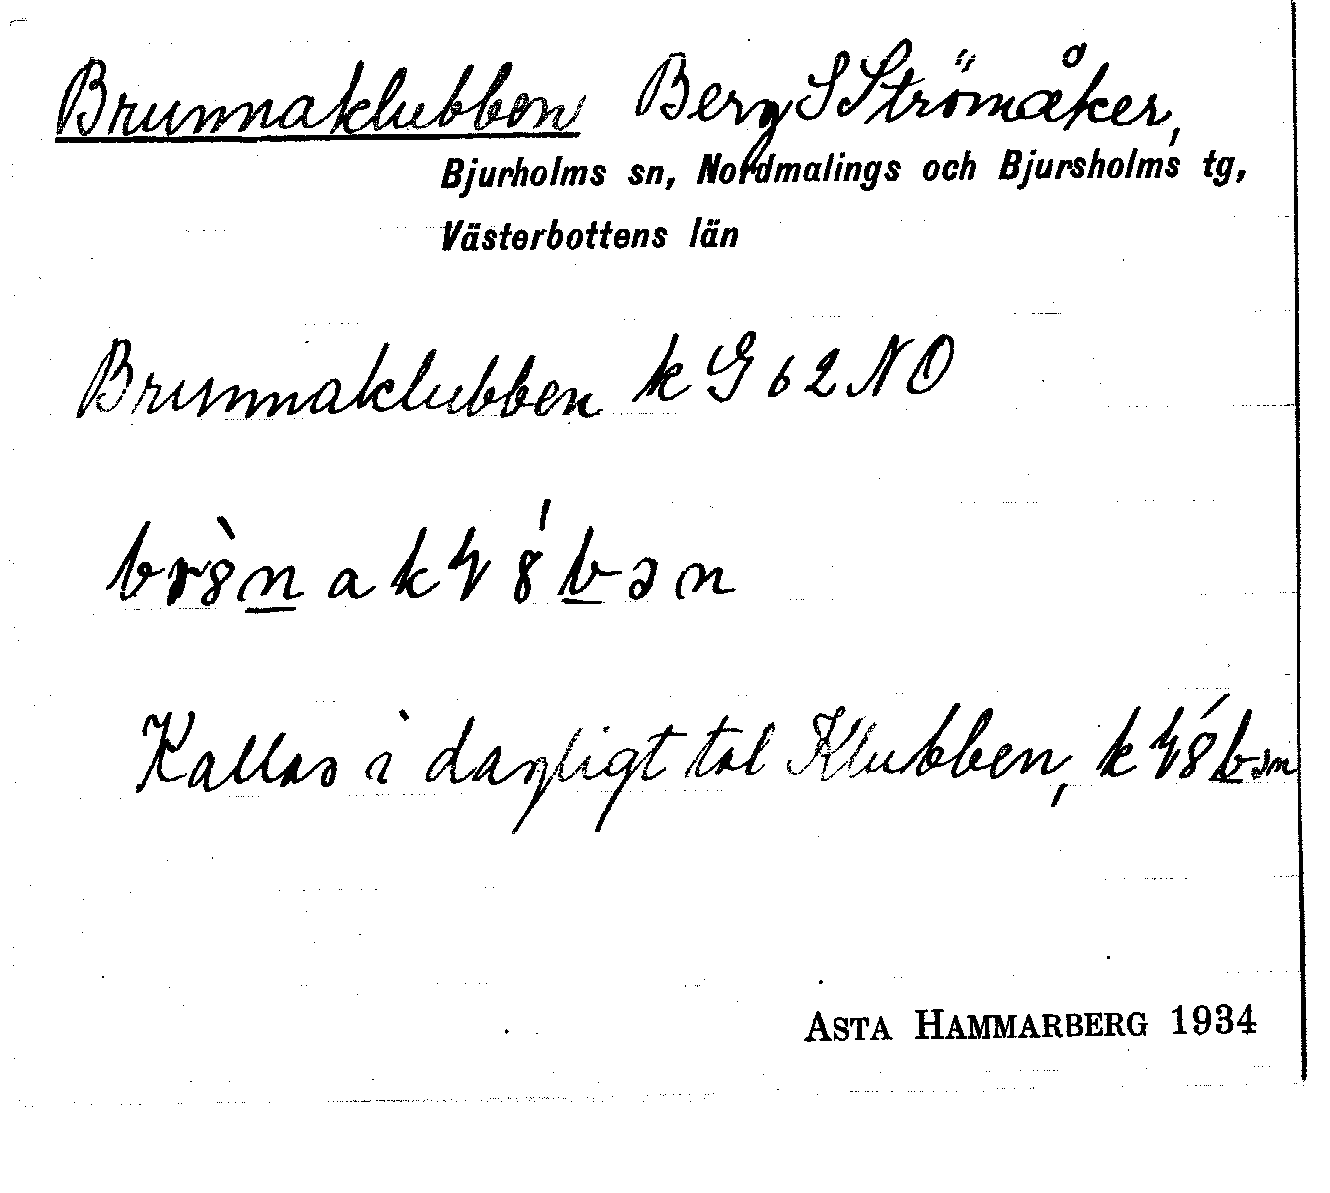 Brunnaklubben Berg S Strömåker,
Bjurholms sn, Nordmalings och Bjursholms tg,
Västerbottens län
Brunnaklubben k G 62 NO
Kallas i dagligt tal Klubben,
ASTA HAMMARBERG 1934